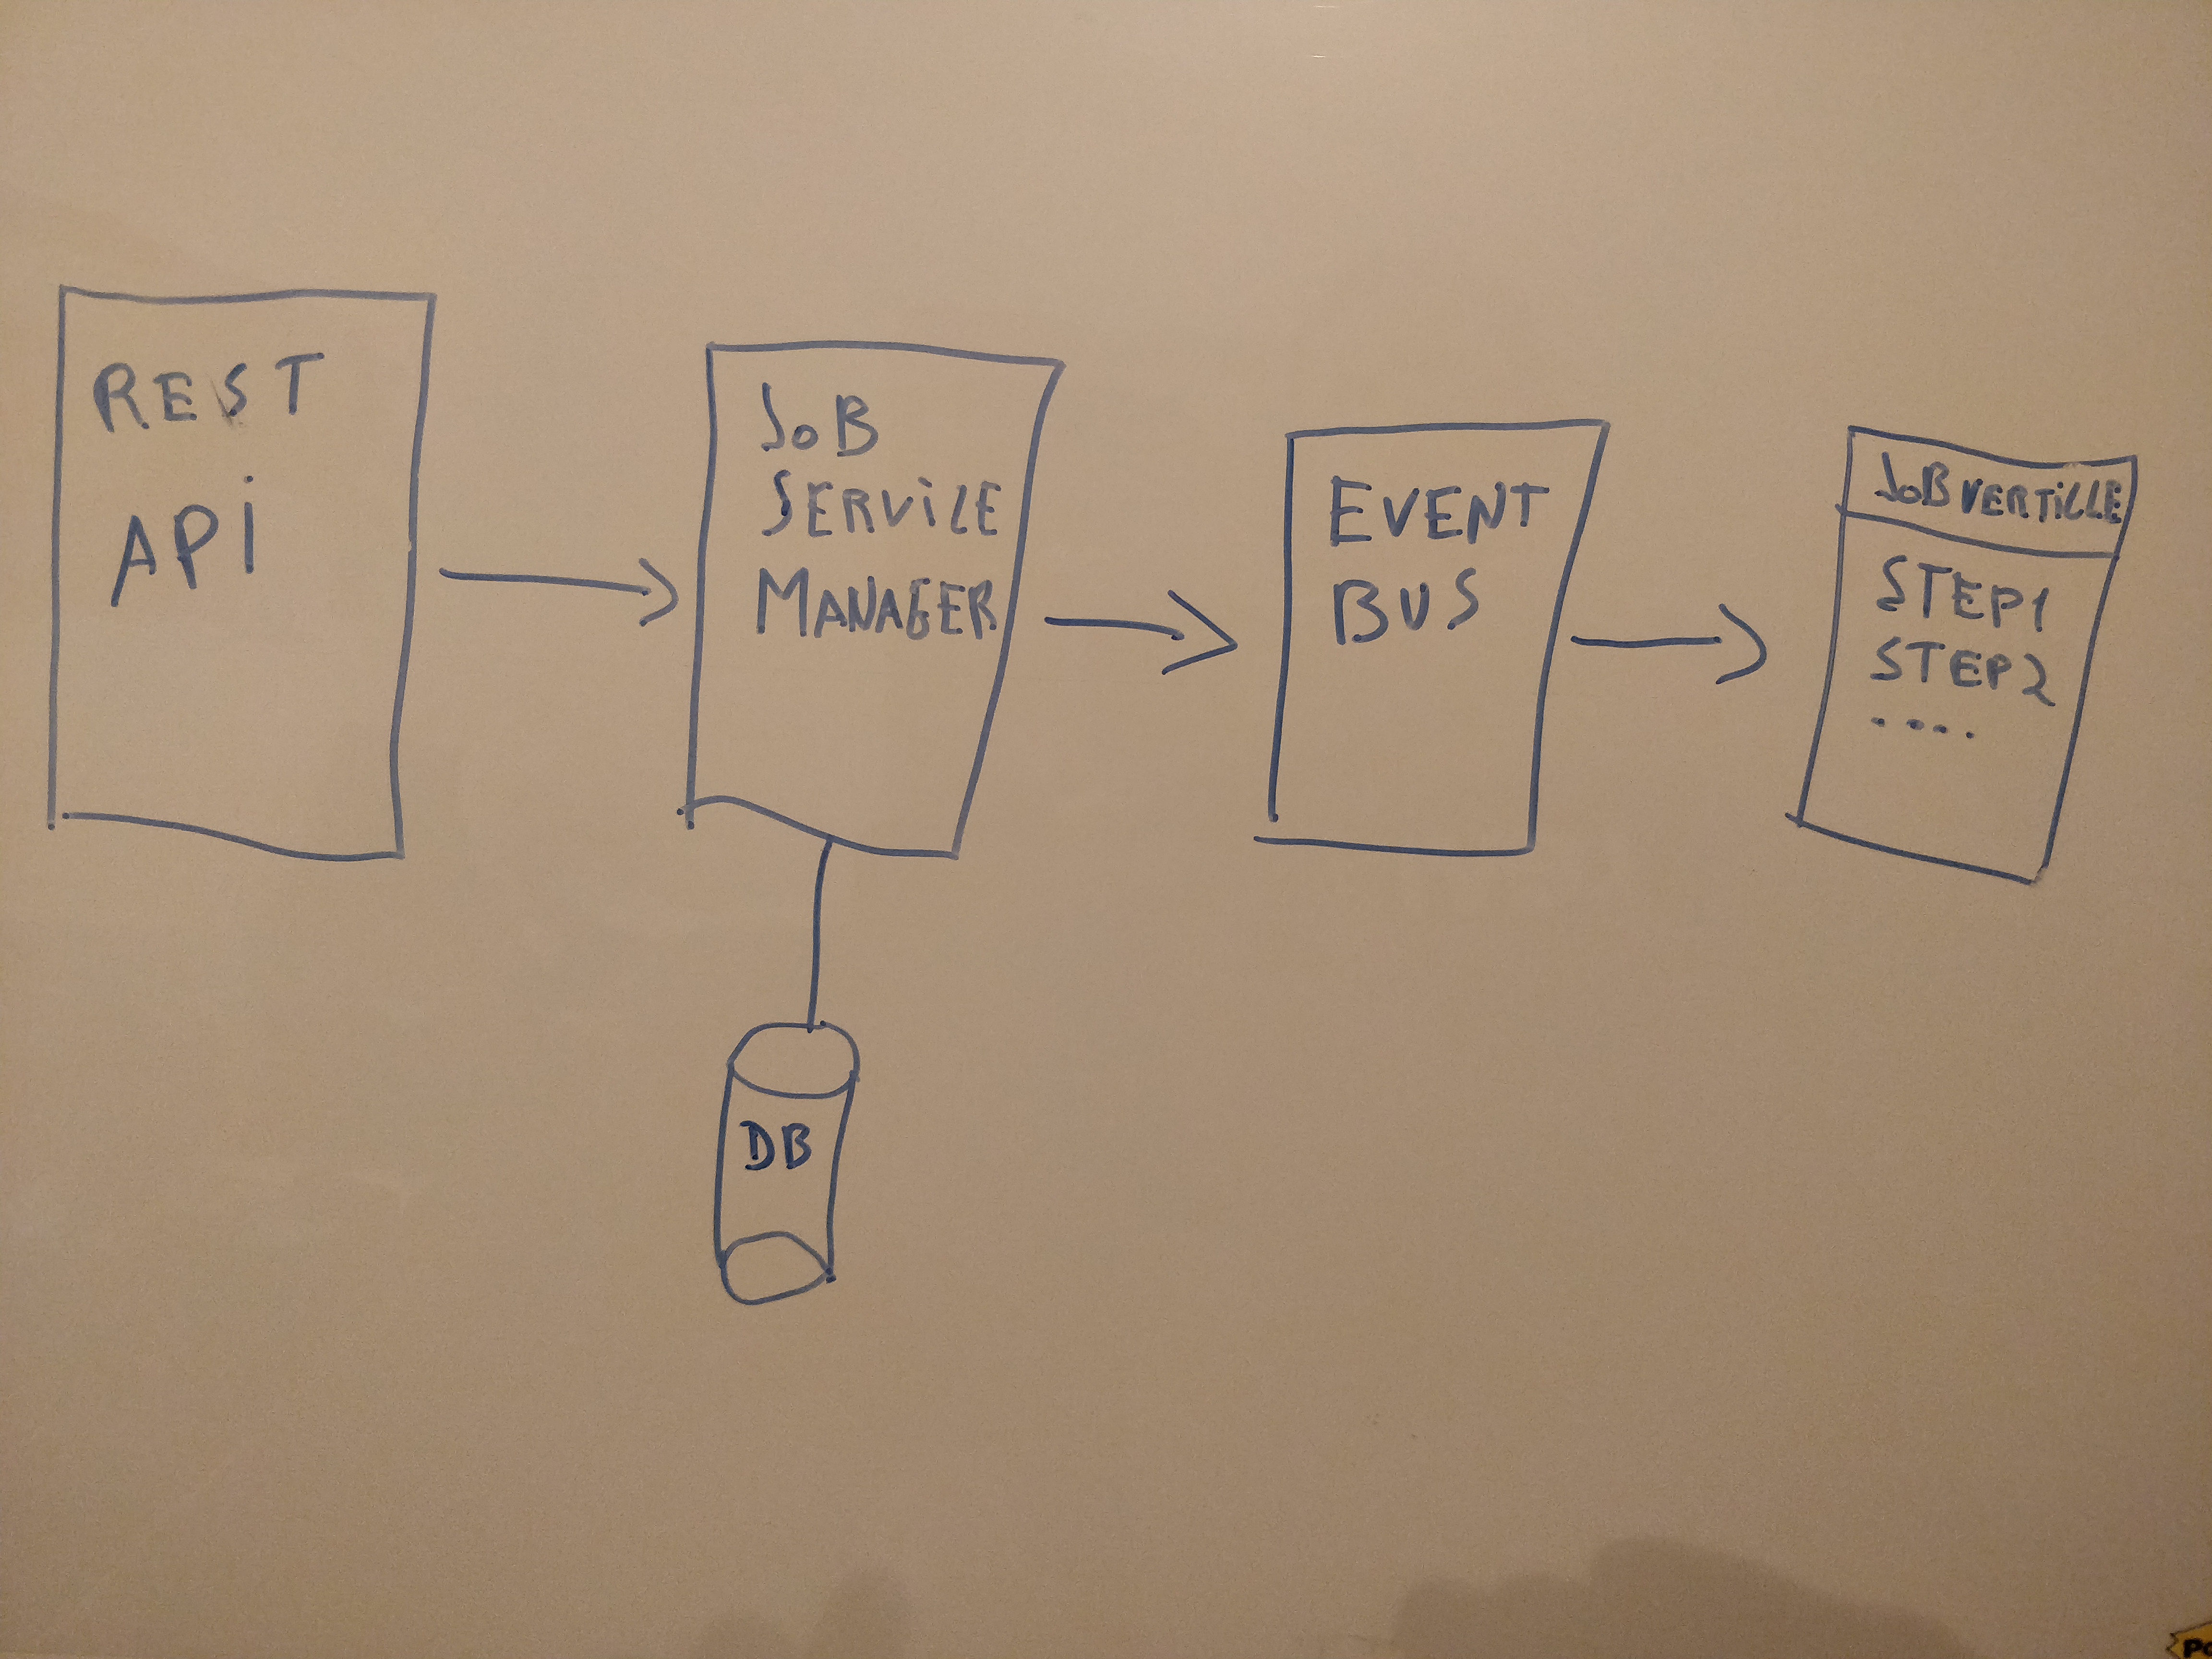 REST
API
JOB
SERVICE
MANAGER
EVENT
BUS
JOB VERTICLE
STEP1
STEP2
....
DB